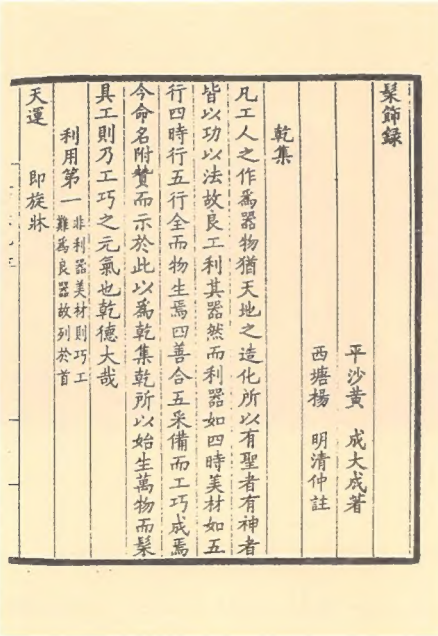 髹飾録
平沙黄　成大成著
西塘楊　明清仲註
乾集
凡工人之作爲器物猶天地之造化所以有聖者有神者
皆以功以法故良工利其器然而利器如四時美材如五
行四時行五行全而物生焉四善合五采備而工巧成焉
今命名附贊而示於此以爲乾集乾所以始生萬物而髹
具工則乃工巧之元氣也乾德大哉
利用第一　非利器美材則巧工
難爲良器故列於首
天運　即旋牀